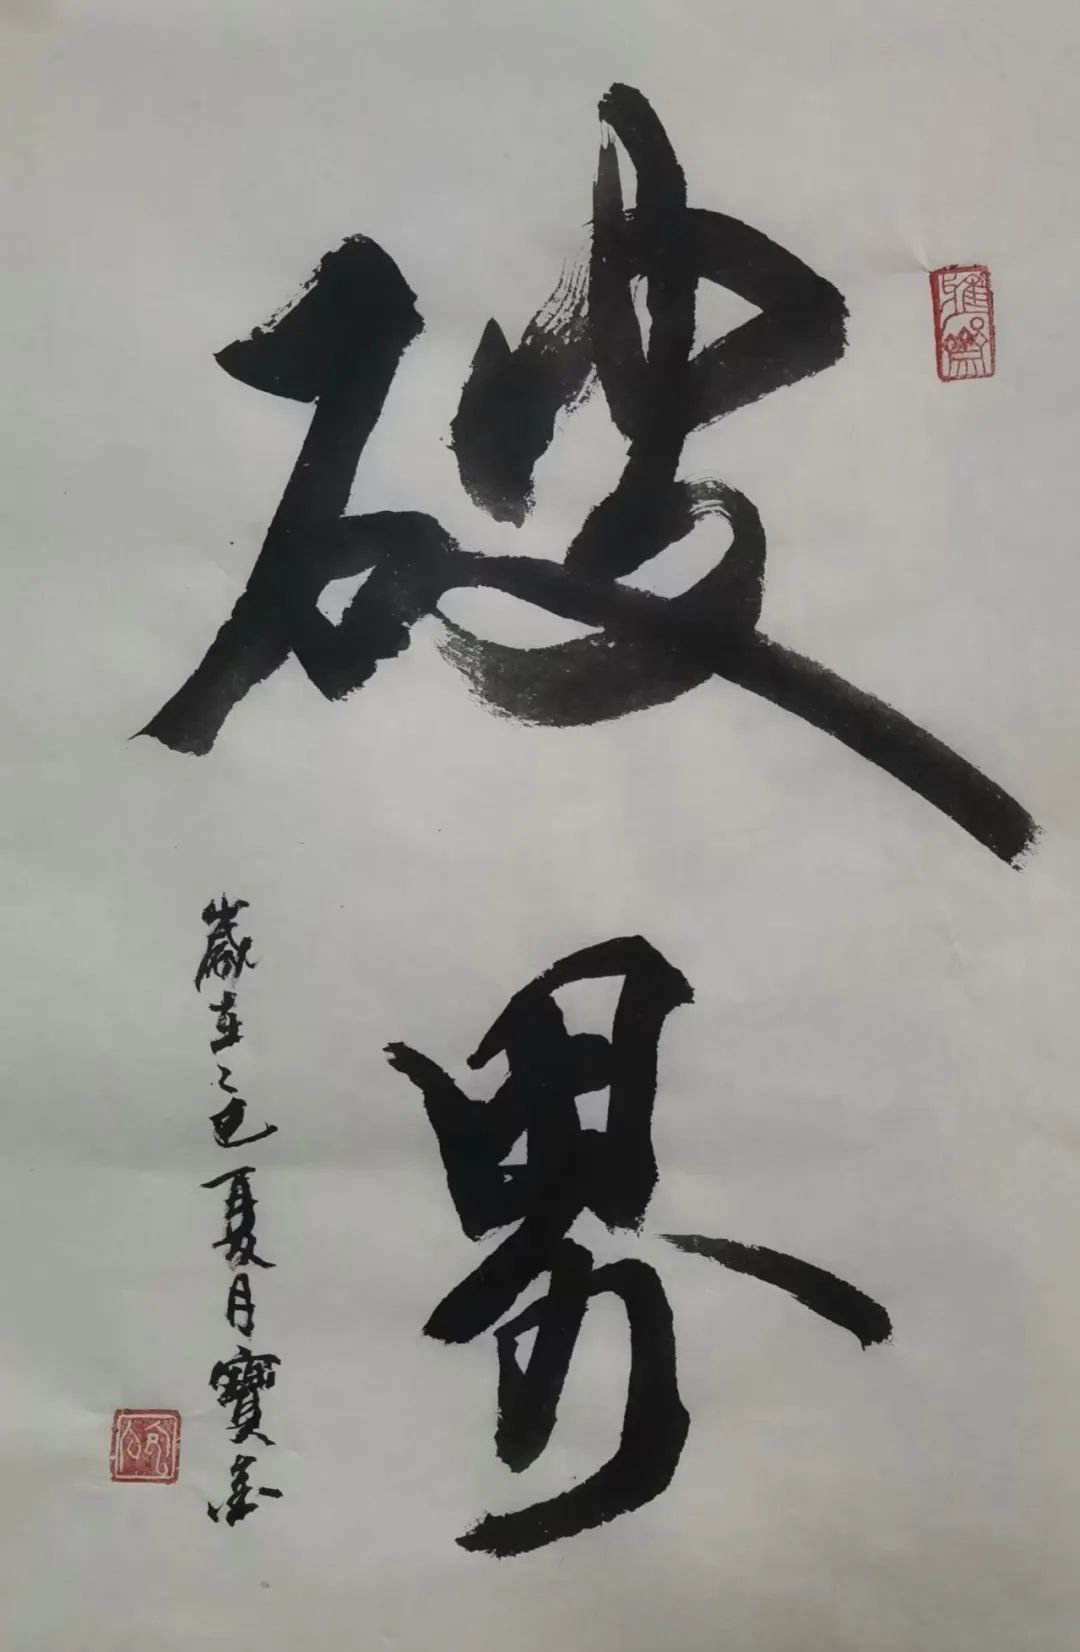 破界
歲在乙巳夏月寶